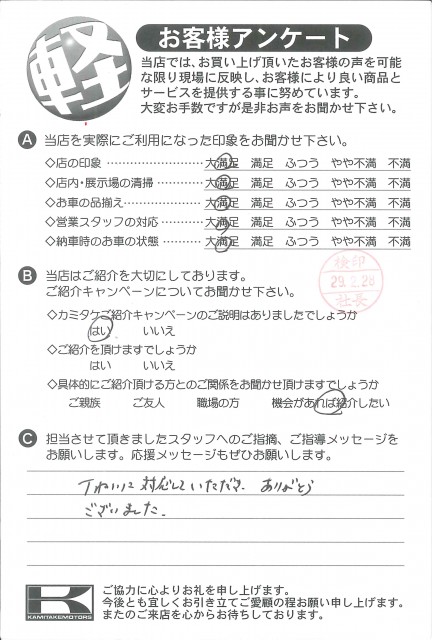 軽
お客様アンケート
当店では、お買い上げ頂いたお客様の声を可能
な限り現場に反映し、お客様により良い商品と
サービスを提供する事に努めています。
大変お手数ですが是非お声をお聞かせ下さい。
A 当店を実際にご利用になった印象をお聞かせ下さい。
◇店の印象 ……………………… 大満足 満足 ふつう やや不満 不満
◇店内・展示場の清掃 ………… 大満足 満足 ふつう やや不満 不満
◇お車の品揃え ………………… 大満足 満足 ふつう やや不満 不満
◇営業スタッフの対応 ………… 大満足 満足 ふつう やや不満 不満
◇納車時のお車の状態 ………… 大満足 満足 ふつう やや不満 不満
B 当店はご紹介を大切にしております。
ご紹介キャンペーンについてお聞かせ下さい。
検印
29.2.26
社長
◇カミタケご紹介キャンペーンのご説明はありましたでしょうか
はい いいえ
◇ご紹介を頂けますでしょうか
はい いいえ
◇具体的にご紹介頂ける方とのご関係をお聞かせ頂けますでしょうか
ご親族 ご友人 職場の方 機会があれば紹介したい
C 担当させて頂きましたスタッフへのご指摘、ご指導メッセージを
お願いします。応援メッセージもぜひお願いします。
丁ねいに対応していただき、ありがとう
ございました。
K
KAMITAKEMOTORS
ご協力に心よりお礼を申し上げます。
今後とも宜しくお引き立てご愛顧の程お願い申し上げます。
またのご来店を心からお待ちしております。